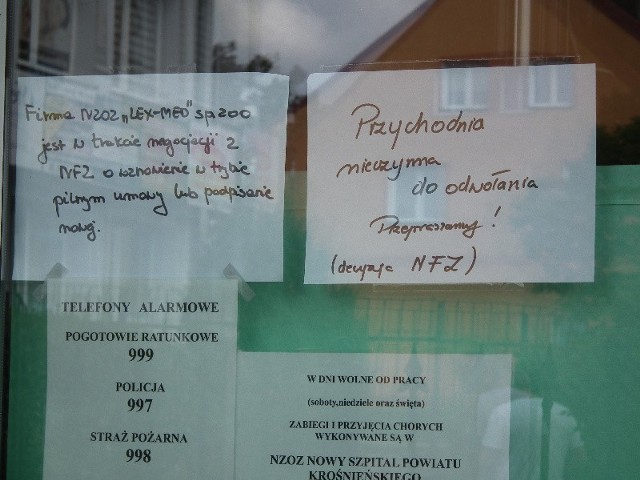 Firma NZOZ „LEX-MED" sp. zoo
jest w trakcie negocjacji z
NFZ o wznowienie w trybie
pilnym umowy lub podpisanie
nowej.
Przychodnia
nieczynna
do odwołania
Przepraszamy!
(decyzja NFZ)
TELEFONY ALARMOWE
POGOTOWIE RATUNKOWE
999
POLICJA
997
STRAŻ POŻARNA
998
W DNI WOLNE OD PRACY
(soboty,niedziele oraz święta)
ZABIEGI I PRZYJĘCIA CHORYCH
WYKONYWANE SĄ W
NZOZ NOWY SZPITAL POWIATU
KROŚNIEŃSKIEGO